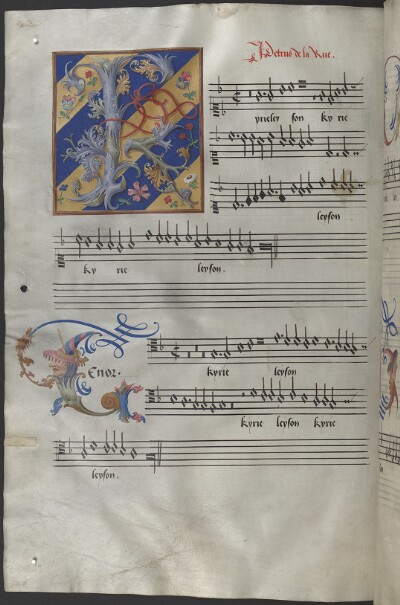 Petrus de la Rue.
K
yrieley son ky rie
leyson
ky rie leyson.
Tenor.
kyrie leyson
kyrie leyson kyrie
leyson.